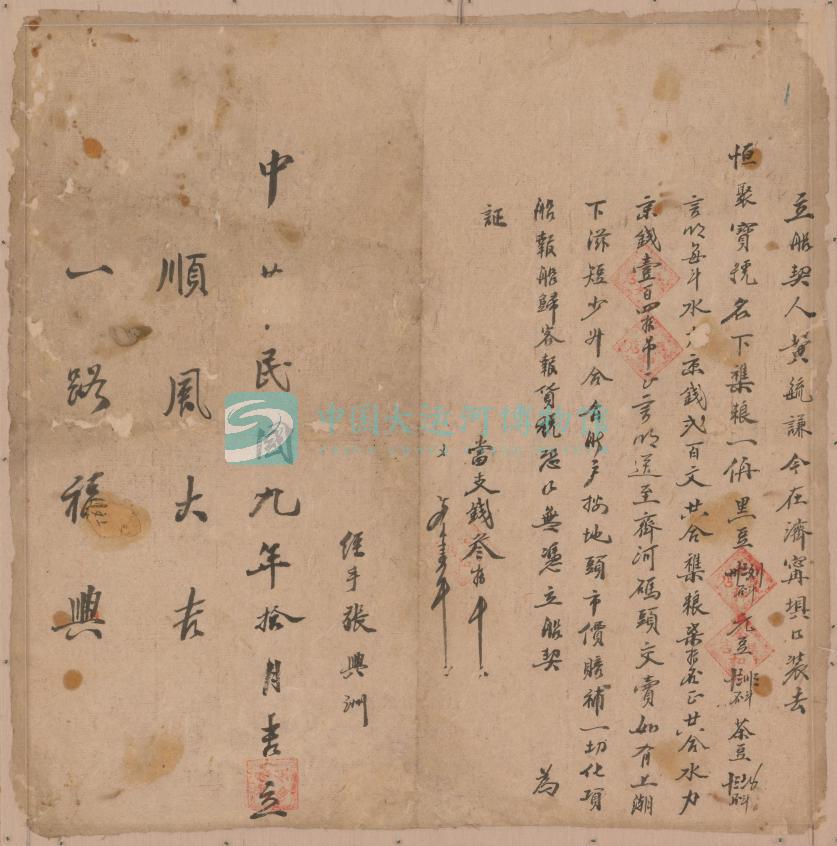 立船契人黃毓謙今在濟甯垻口裝去
恒聚寶號名下雜粮一俩黑豆 元豆 茶豆
言明每斗水力京錢弍百文共合雜粮柒拾石正共合水力
京錢壹百四拾吊正言明送至齊河碼頭交賣如有上潮
下滋短少升合有財戶按地頭市價賠補一切化項
船報船歸客報貨税恐口無憑立船契 為
証
當支錢叁拾千
经手張興洲
中廿民國九年拾月吉立
順風大吉
一路福興
中国大运河博物馆